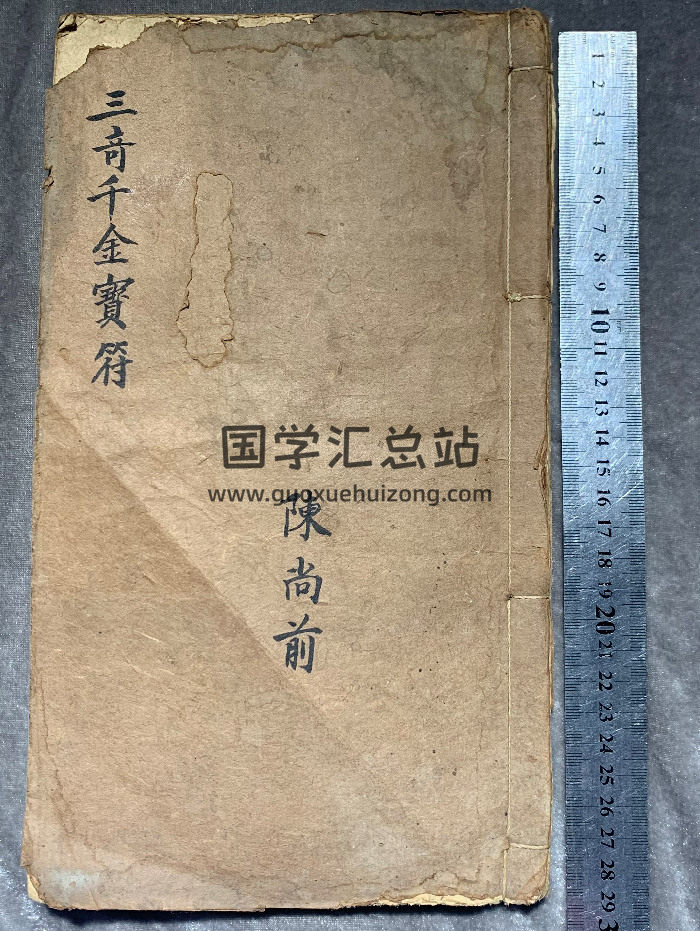 三奇千金寶符
国学汇总站
www.guoxuehuizong.com
陳尚前
1
2
3
4
5
6
7
8
9
10
11
12
13
14
15
16
17
18
19
20
21
22
23
24
25
26
27
28
29
3